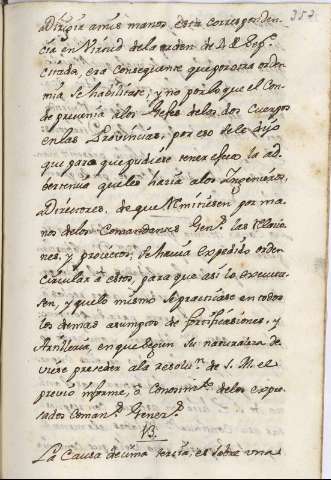 357.
adirigia a mis manos, esta corresponden-
cia en Virtud de la orden de
citada, era Consequente que por otra orden
mia se habilitase; y no por lo que el Con-
de prevenia a los Gefes de los dos Cuerpos
en las Provincias, por eso se le dijo
qui para que pudiese tener efecto la ad-
bertencia que les hacia a los Ingenieros,
Directores, de que Remitiesen por ma-
nos de los Comandantes Gen.s las
nes, y proyectos, se havia expedido orden
circular a estos, para que asi lo executa-
sen, y que lo mismo se practicase en todos
los demas asumptos de fortificasiones, y
Artilleria, en que segun su naturaleza de-
viese preceder a la resolu.n de S. M. el
previo informe, ó Conosim.to de los expre-
sados Coman.s Gener.s
13.
La Causa decima tercia, es sobre una